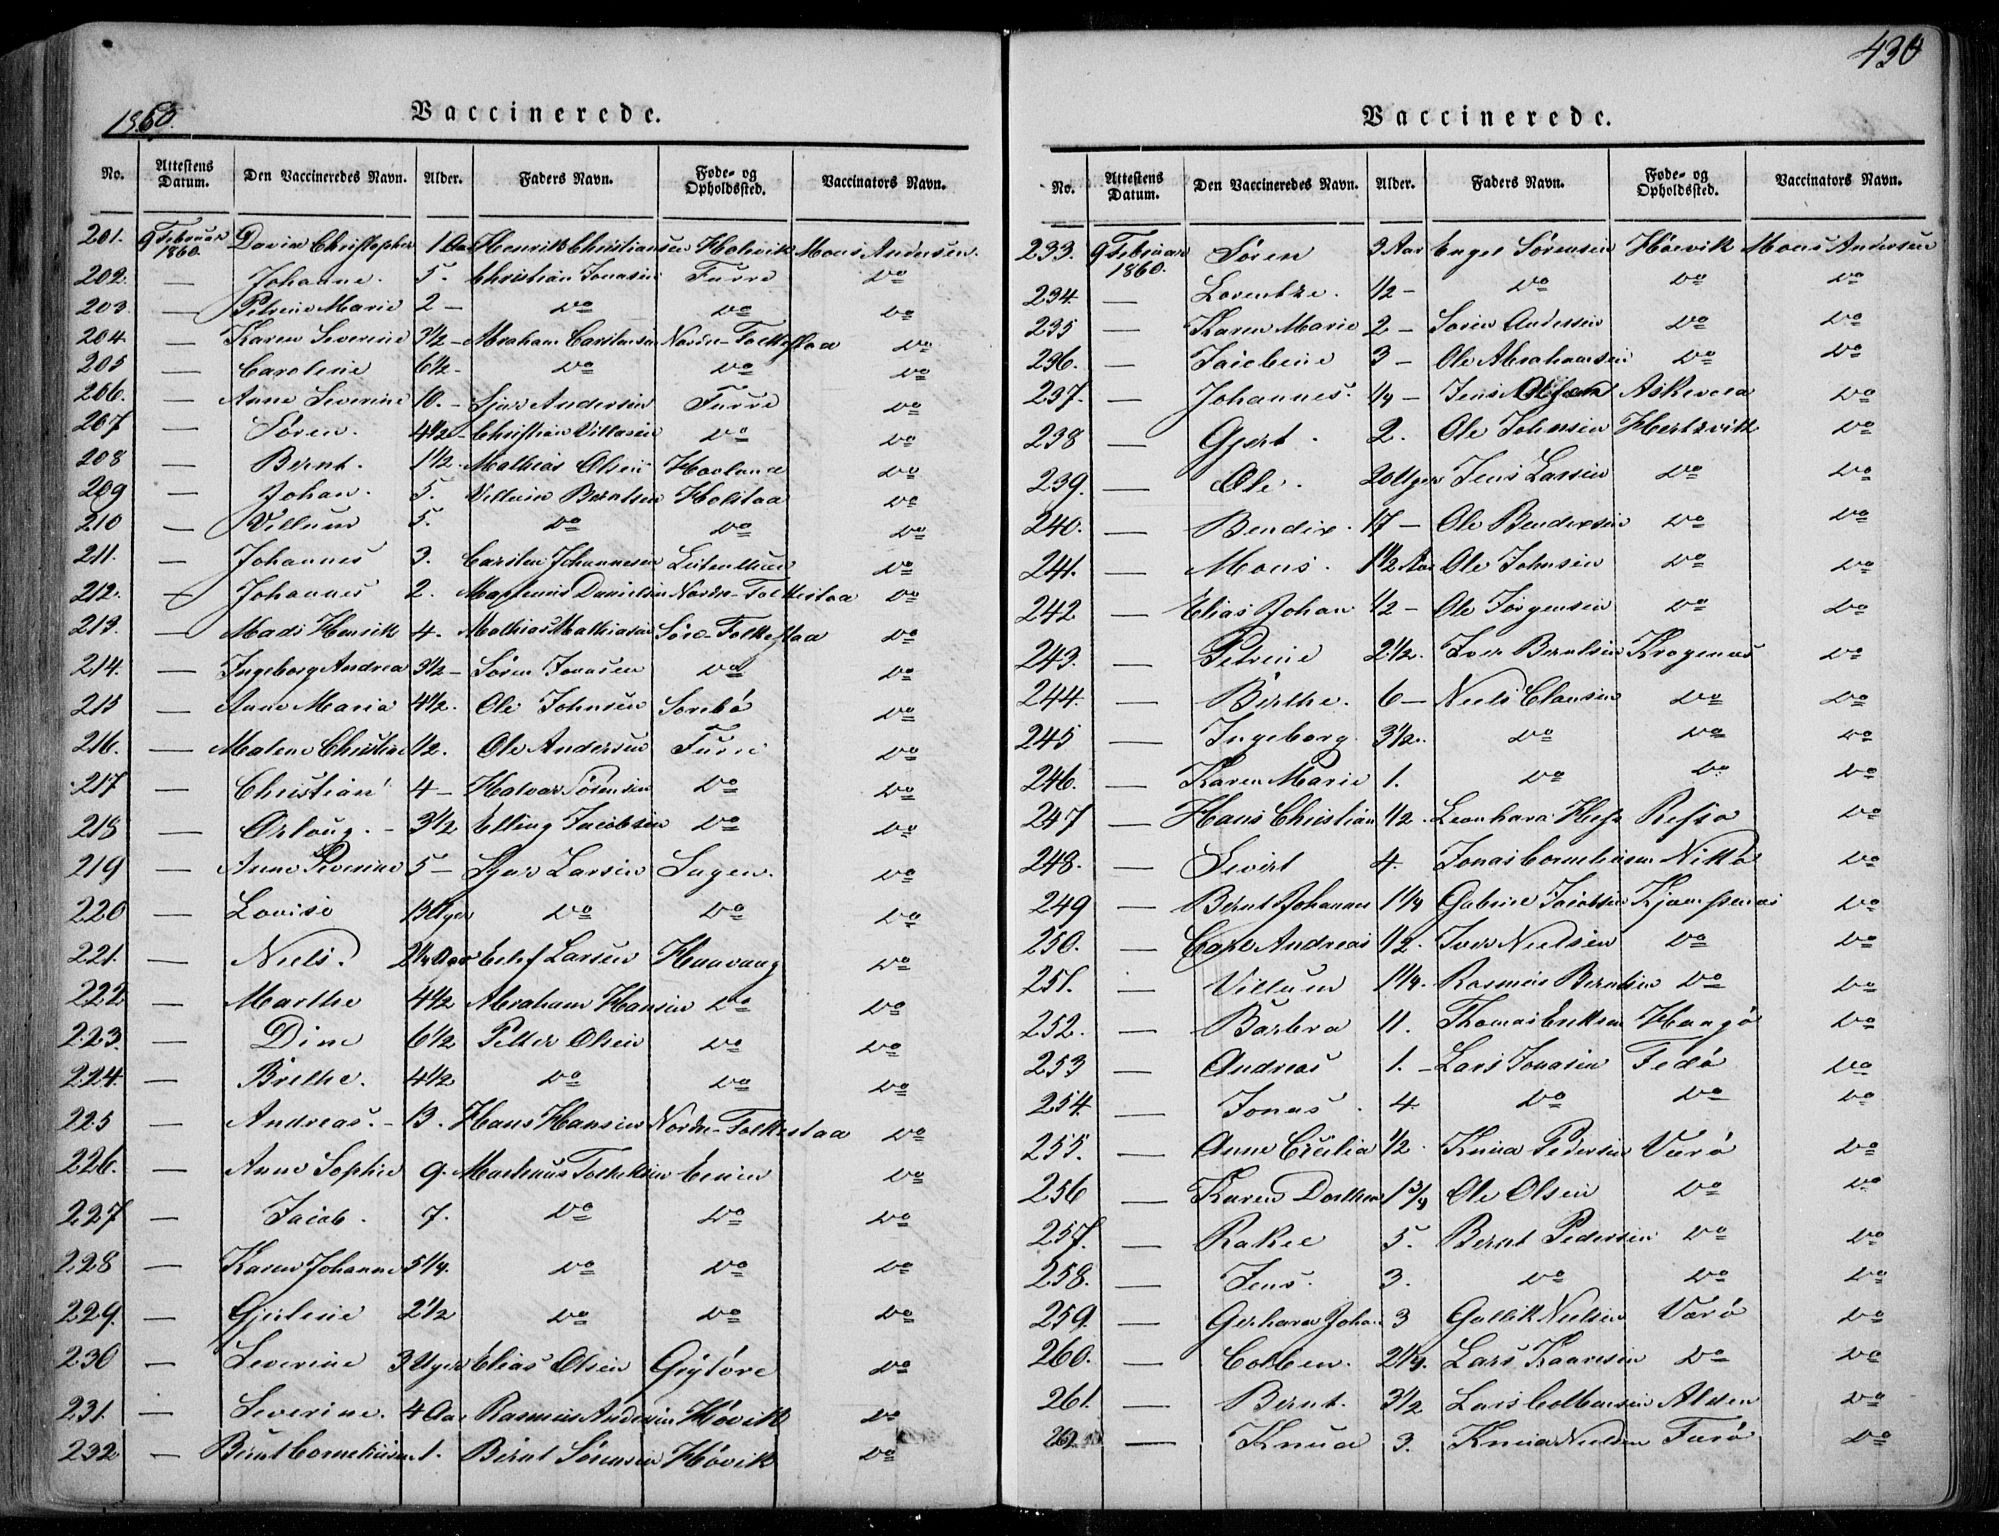 430
1860.
Vaccinerede.
No. Attestens Datum. Den Vaccineredes Navn. Alder. Faders Navn. Føde- og Opholdssted. Vaccinators Navn.
201. 9 Februar 1860. David Christopher 1 Aar Henrik Christiansen Holevik Mons Andersen.
202. — Johanne. 5. Christian Jonasen Furre do
203. — Petrine Marie 2 — do do do
204. — Karen Severine 3½ — Abraham Carstensen Nordre-Folkestaa do
205 — Caroline 6½ — do do do
206. — Anne Severine 10. — Andersen Furre do
207 — Søren. 4½ — Christian Villasen do do
208 — Bernt. 1½. Mathias Olsen Hovland do
209 — Johan. 5. Villum Berntsen Holstaa do
210 — Villum 5. do do do
211. — Johannes 3. Carsten Johannesen do
212. — Johannes 2. Danielsen Nordre-Folkestaa do
213. — Mads Henrik 4. Mathias Mathiasen Søre-Folkestaa do
214. — Ingeborg Andrea 3½ — Søren Jonasen do do
215 — Anne Maria 4½. Ole Johnsen Sørebø do
216. — Malene Christine ½. Ole Andersen Furre do
217 — Christian 4 — Halvar Sørensen do do
218 — 3½ Elling Jacobsen do do
219 — Anne Severine 5 — Larsen Sagen. do
220 — Lovise 13 Uger do do do
221. — Niels. 2¼ Aar Larsen Haavang do
222 — Marthe 4½ Abraham Hansen do do
223. — Dine 6½ Petter Olsen do do
224. — Brithe. 4½ do do do
225 — Andreas. — 13. Hans Hansen Nordre-Folkestaa do
226. — Anne Sophie 9. do
227 — Jacob. 7. do do do
228 — Karen Johanne 5¼. do do do
229. — Gjertine 2½ do do do
230 — Severine 3 Uger Elias Olsen Gjytøre do
231. — Severine. 4 Aar Rasmus Andersen Høvik do
232 — Bernt Corneliusen 1. Bernt Sørensen Høvik do
Vaccinerede.
No. Attestens Datum. Den Vaccineredes Navn. Alder. Faders Navn. Føde- og Opholdssted. Vaccinators Navn.
233. 9 Februar 1860. Søren 3 Aar Engel Sørensen Høevik Mons Andersen
234. — Lorentze. ½ — do do do
235 — Karen Marie 2 — Søren Andersen do do
236. — Jacobine 3 — Ole Abrahamsen do do
237. — Johannes. ¼ — Jens Askevold do
238 — Gjert. 2. Ole Johnsen Hertzvik do
239. — Ole. 20 Uger Jens Larsen do do
240. — Bendix. 17 — Ole Bendixsen do do
241. — Mons. 1½ Aar Ole Johnsen do do
242 — Elias Johan ½ — Ole Jørgensen do do
243. — Petrine 2½. Iver Berntsen Krogenæs do
244. — Berthe. 6 — Niels Clausen do do
245 — Ingeborg. 3½. do do do
246. — Karen Marie 1. do do do
247 — Hans Christian ½. Leonhard Refsø do
248. — Sivert 4. Jonas Corneliusen Nikkø do
249 — Bernt Johannes 1¼ Gabriel Jacobsen do
250. — Carl Andreas ½. Iver Nielsen do do
251. — Villum 1¼. Rasmus Berntsen do do
252. — Barbra 11. Thomas Eriksen Haagø do
253 — Andreas 1. — Lars Jonasen Fedø do
254. — Jonas. 4. do do do
255. — Anne Cecilia ½. Knud Pedersen Værø do
256 — Karen Dorthea 1¾ Ole Olsen do do
257. — Rakel 5. Bernt Pedersen do do
258. — Jens. 3. do do do
259. — Gerhard Johan 3 Gullik Nielsen Værø do
260. — Colben. 2¼. Lars Kaaresen do do
261. — Bernt. 3½ Lars Colbensen Alden do
262 — Knud 3. Knud Nielsen Færø do